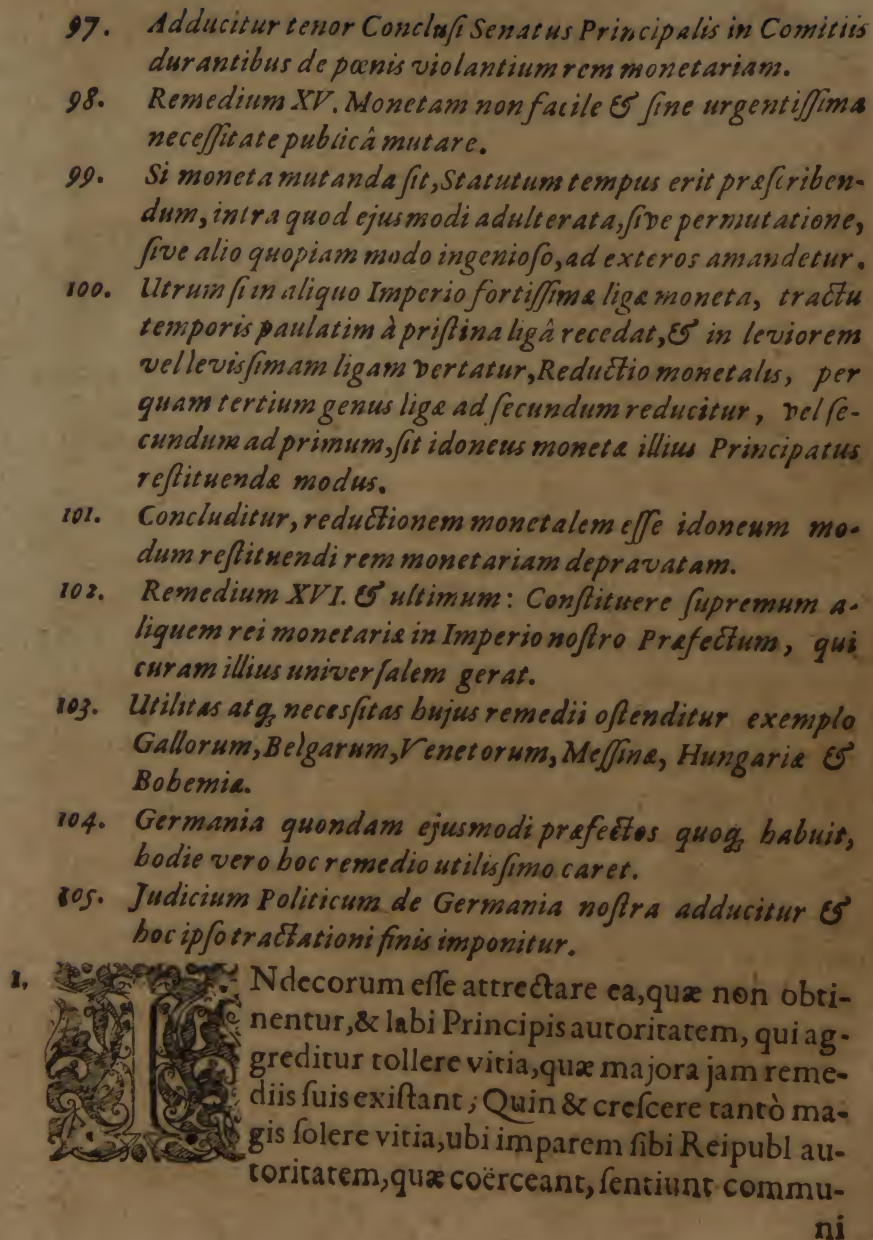 97. Adducitur tenor Concluſi Senatus Principalis in Comitiis
durantibus de pœnis violantium rem monetariam.
98. Remedium XV. Monetam non facile & ſine urgentiſſima
neceſſitate publicâ mutare.
99. Si moneta mutanda ſit, Statutum tempus erit præſcriben-
dum, intra quod ejusmodi adulterata, ſive permutatione,
ſive alio quopiam modo ingenioſo, ad exteros amandetur.
100. Utrum ſi in aliquo Imperio fortiſſimæ ligæ moneta, tractu
temporis paulatim à priſtina ligâ recedat, & in leviorem
vel levisſimam ligam vertatur, Reductio monetalis, per
quam tertium genus ligæ ad ſecundum reducitur, vel ſe-
cundum ad primum, ſit idoneus monetæ illius Principatus
reſtituendæ modus.
101. Concluditur, reductionem monetalem eſſe idoneum mo-
dum reſtituendi rem monetariam depravatam.
102. Remedium XVI. & ultimum: Conſtituere ſupremum a-
liquem rei monetariæ in Imperio noſtro Præfectum, qui
curam illius univerſalem gerat.
103. Utilitas atq; necesſitas hujus remedii oſtenditur exemplo
Gallorum, Belgarum, Venetorum, Meſſinæ, Hungariæ &
Bohemiæ.
104. Germania quondam ejusmodi præfectos quoq; habuit,
hodie vero hoc remedio utilisſimo caret.
105. Judicium Politicum de Germania noſtra adducitur &
hoc ipſo tractationi finis imponitur.
1. INdecorum eſſe attrectare ea, quæ non obti-
nentur, & labi Principis autoritatem, qui ag-
greditur tollere vitia, quæ majora jam reme-
diis ſuis exiſtant; Quin & creſcere tantò ma-
gis ſolere vitia, ubi imparem ſibi Reipubl au-
toritatem, quæ coërceant, ſentiunt commu-
ni